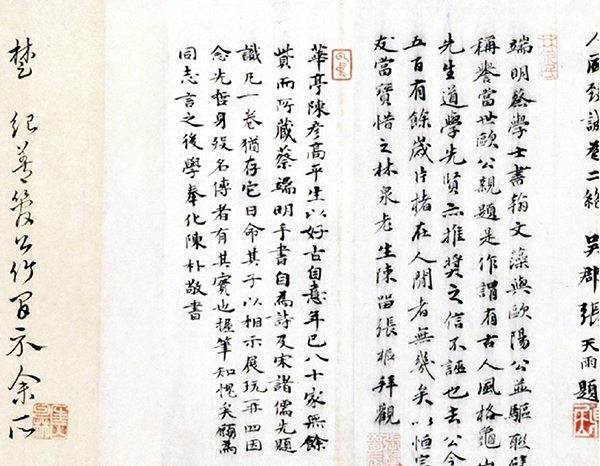 卷二絕 吳郡張天雨題
端明蔡學士書翰文藻與歐陽公並驅聯
稱譽當世歐公親題是作謂有古人風格龜山
先生道學先賢亦推獎之信不誣也去公今
五百有餘歲片楮在人間者無幾矣
友當寶惜之林泉老生陳留張樞拜觀
華亭陳彥高平生以好古自意年已八十家無餘
貲而所藏蔡端明手書自為詩及宋諸儒先題
識凡一卷猶存它日命其子以相示展玩再四因
念先哲身歿名傳者有其實也握筆知愧矣願為
同志言之後學奉化陳朴敬書
楚 紀善 公竹 示余所